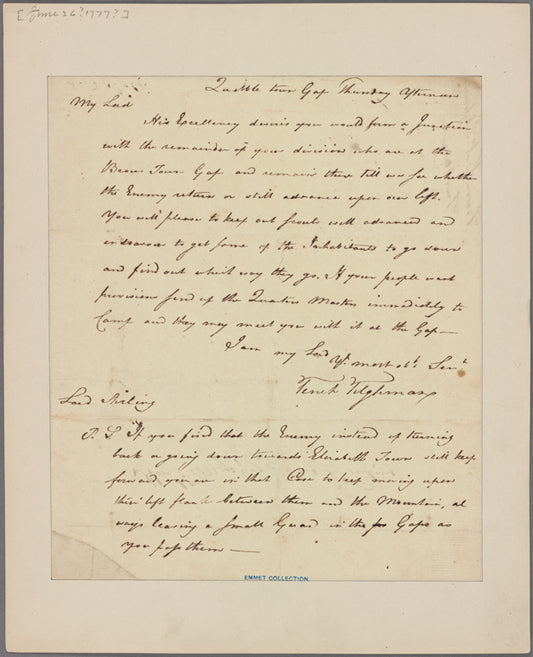 [June 26? 1777?]
Quibble town Gap Thursday Afternoon
My Lord
His Excellency desires you would form a Junction
with the remainder of your division who are at the
Bound Town Gap and remain there till we see whether
the Enemy return or still advance upon our left.
You will please to keep out Scouts well advanced and
endeavour to get some of the Inhabitants to go down
and find out which way they go. If your people want
provisions send up the Quarter Masters immediately to
Camp and they may meet you with it at the Gap—
I am my Lord Yr. most obt. Servt.
Tench Tilghman
Lord Stirling
P. S. If you find that the Enemy instead of turning
back or going down towards Elizabeth Town still keep
forward you are in that Case to keep moving upon
their left flank between them and the Mountain, al
ways leaving a Small Guard in the Gaps as
you pass them —
EMMET COLLECTION.